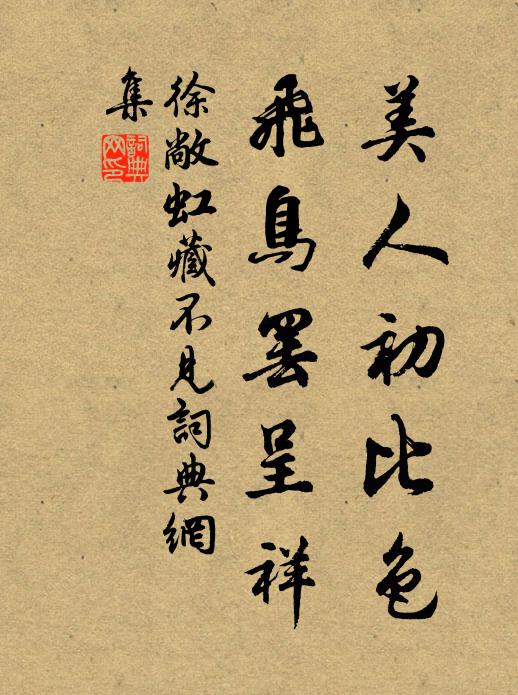 美人初比色
飛鳥罷呈祥
徐敞虹藏不見詞典網
集
詞典
网印